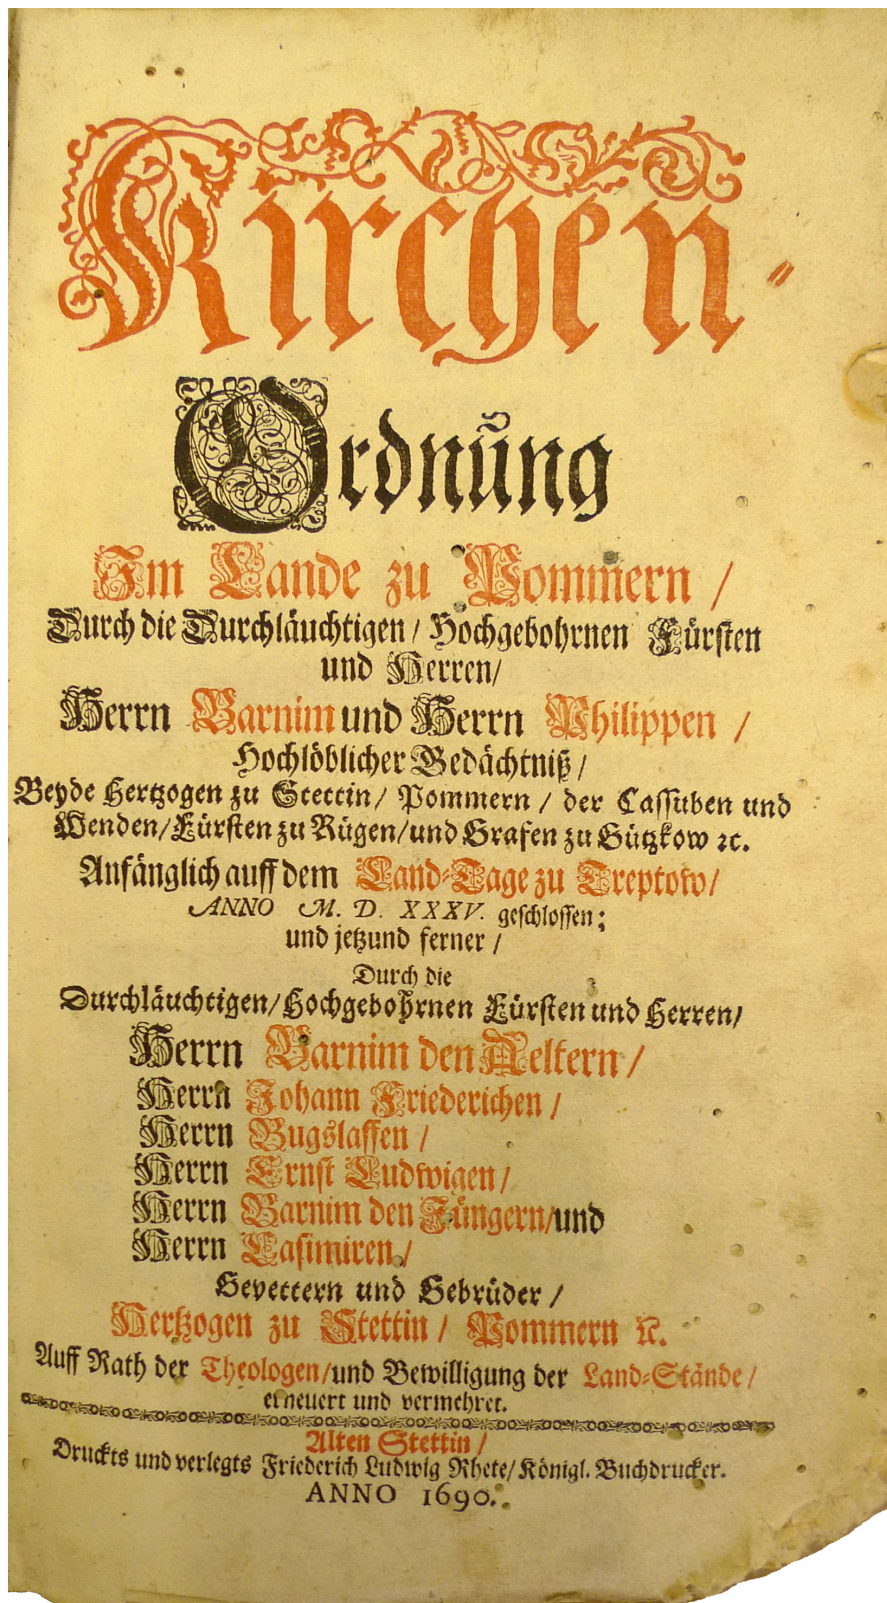 Kirchen-
Ordnũng
Im Lande zu Pommern /
Durch die Durchläuchtigen / Hochgebohrnen Fürsten
und Herren /
Herrn Barnim und Herrn Philippen /
Hochlöblicher Gedächtniß /
Beyde Hertzogen zu Stettin / Pommern / der Cassuben und
Wenden / Fürsten zu Rügen / und Grafen zu Gützkow ꝛc.
Anfänglich auff dem Land-Tage zu Treptow /
ANNO M. D. XXXV. geschlossen;
und jetzund ferner /
Durch die
Durchläuchtigen / Hochgebohrnen Fürsten und Herren /
Herrn Barnim den Aeltern /
Herrn Johann Friederichen /
Herrn Bugslaffen /
Herrn Ernst Ludwigen /
Herrn Barnim den Jüngern / und
Herrn Casimiren /
Gevettern und Gebrüder /
Hertzogen zu Stettin / Pommern ꝛc.
Auff Rath der Theologen / und Bewilligung der Land-Stände /
erneuert und vermehret.
Alten Stettin /
Druckts und verlegts Friederich Ludwig Rhete / Königl. Buchdrucker.
ANNO 1690.